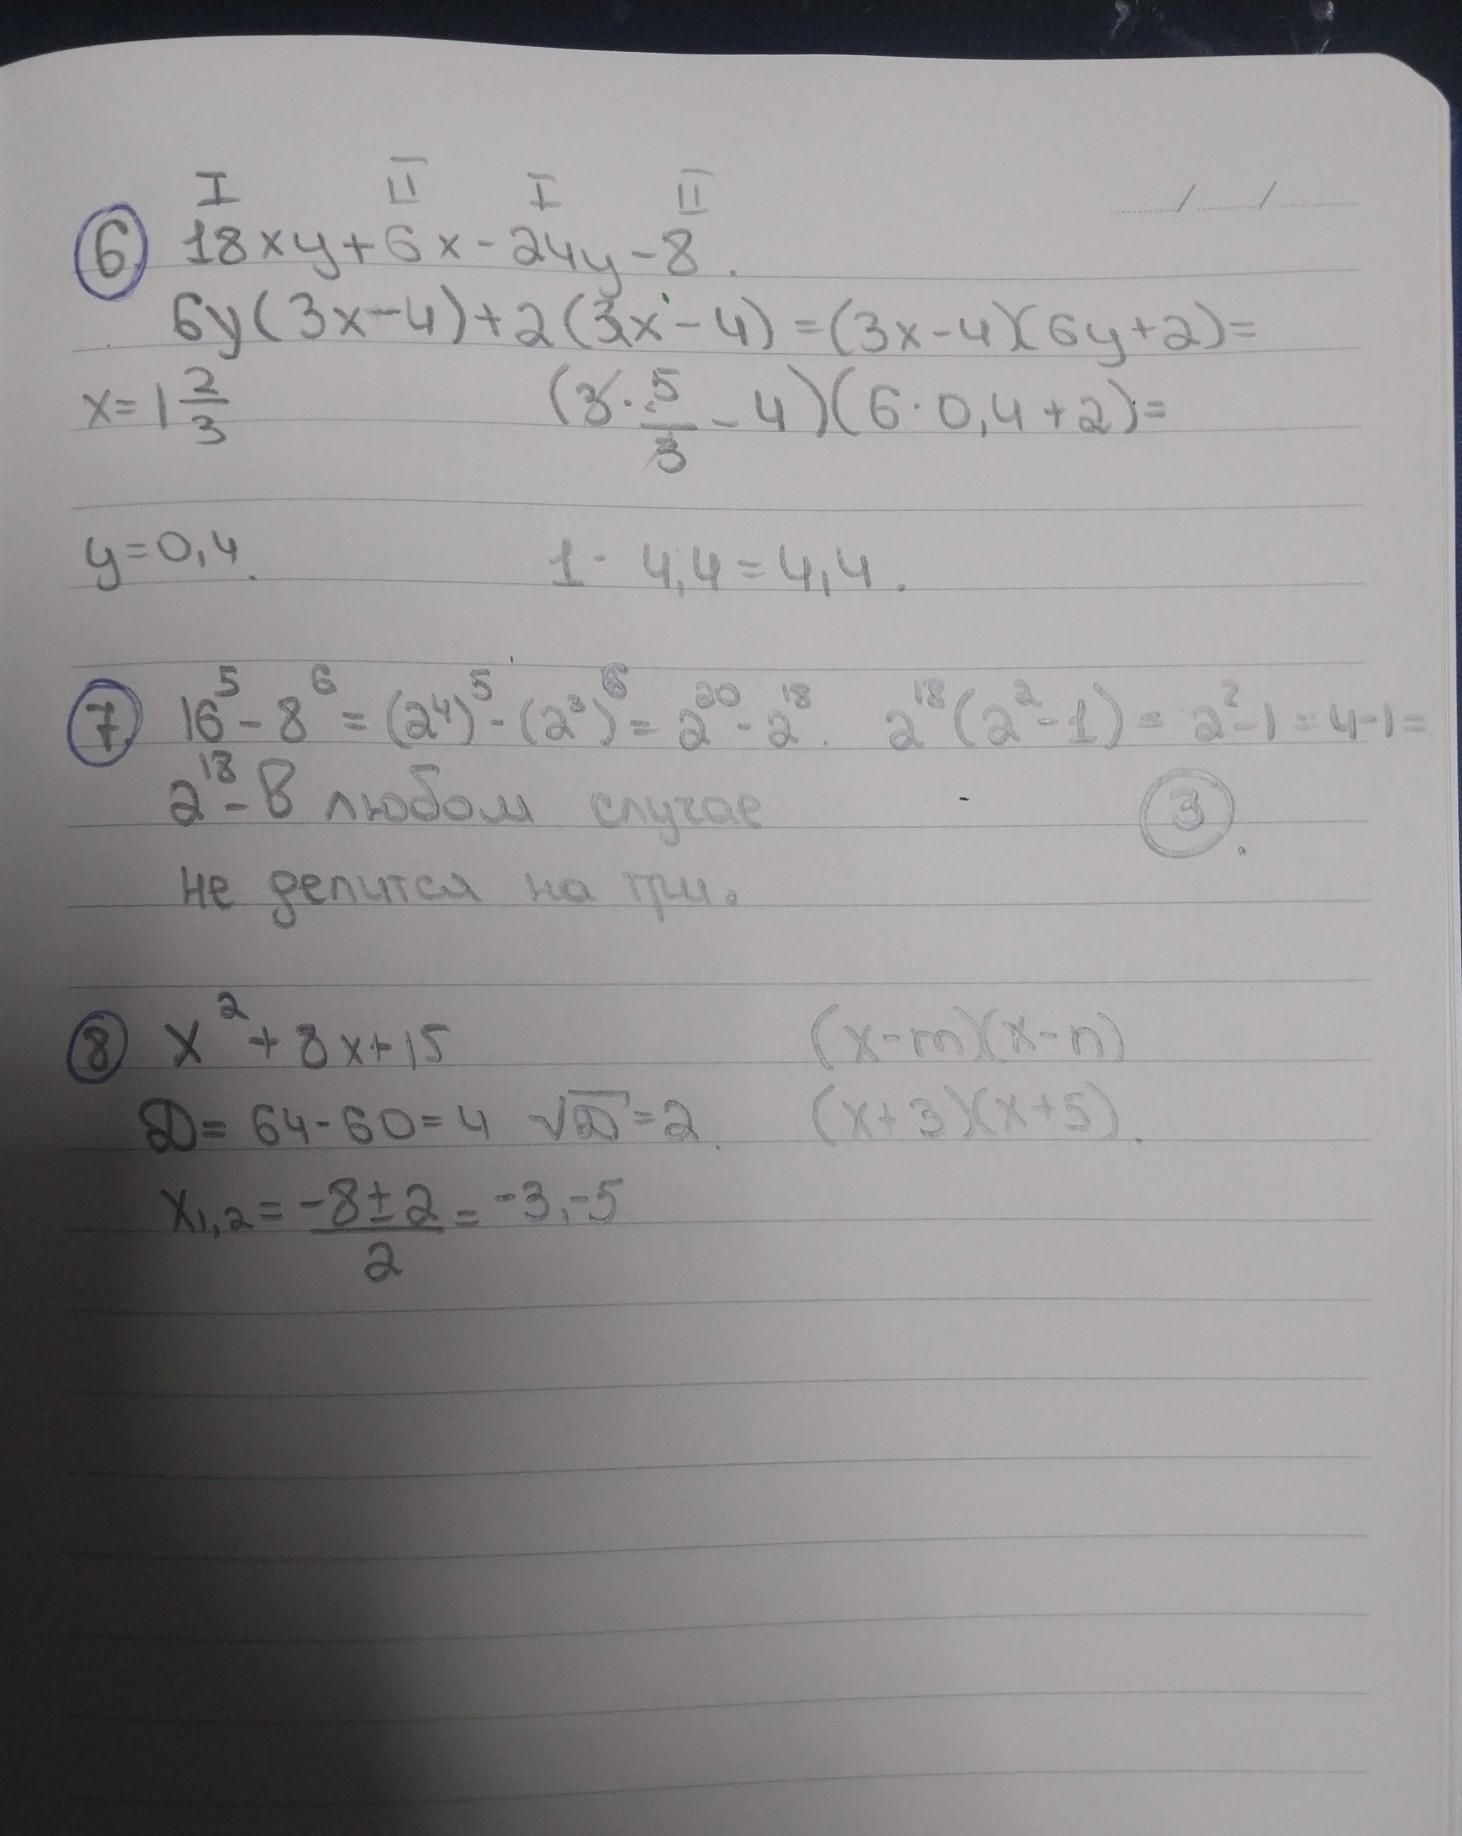 I II I II
6 18xy+6x-24y-8.
6y(3x-4)+2(3x-4)=(3x-4)(6y+2)=
x=1 2/3 (3·5/3-4)(6·0,4+2)=
y=0,4. 1·4,4=4,4.
7 16⁵-8⁶=(2⁴)⁵-(2³)⁶=2²⁰-2¹⁸. 2¹⁸(2²-1)=2²-1=4-1=
2¹⁸-В любом случае 3.
не делится на три.
8 x²+8x+15 (x-m)(x-n)
D=64-60=4 √D=2. (x+3)(x+5).
x₁,₂=(-8±2)/2=-3,-5